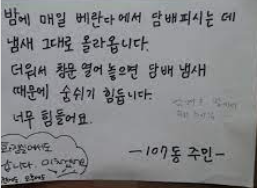 밤에 매일 베란다에서 담배피시는 데
냄새 그대로 올라옵니다.
더워서 황문 열어 놓으면 담배 냄새
때문에 숨쉬기 힘듭니다.
너무 힘들어요.
-107동 주민-